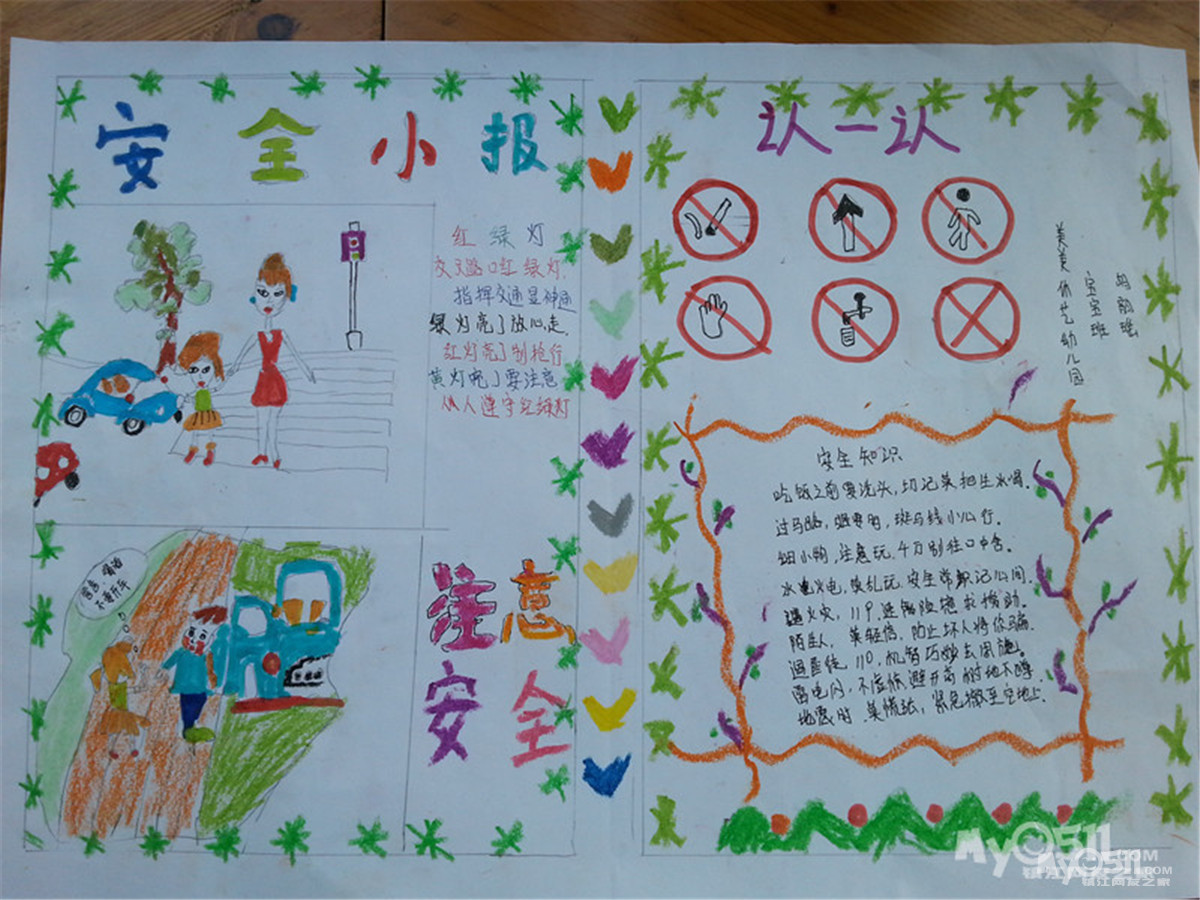 安全小报
红绿灯
交叉路口红绿灯,
指挥交通显神通
绿灯亮了放心走.
红灯亮了别抢行
黄灯亮了要注意
人人遵守红绿灯
爸爸,爸爸
不要开车
注意
安全
认一认
美美保艺幼儿园
宝宝班
安全知识
吃饭之前要洗头,切记莫把生水喝.
过马路,眼要明,斑马线小心行.
细小钩,注意玩,千万别往口中含。
水电火电,莫乱玩,安全常识记心间.
遇火灾,119,速离险境求援助.
陌生人,莫轻信,防止坏人将你骗.
遇歪徒,110,机智巧妙去周旋.
雷电闪,不慌慌,避开高树地不蹲.
地震时,莫慌张,紧急撤至空地上.
My0511
.COM
My0511
.COM
镇江网友之家